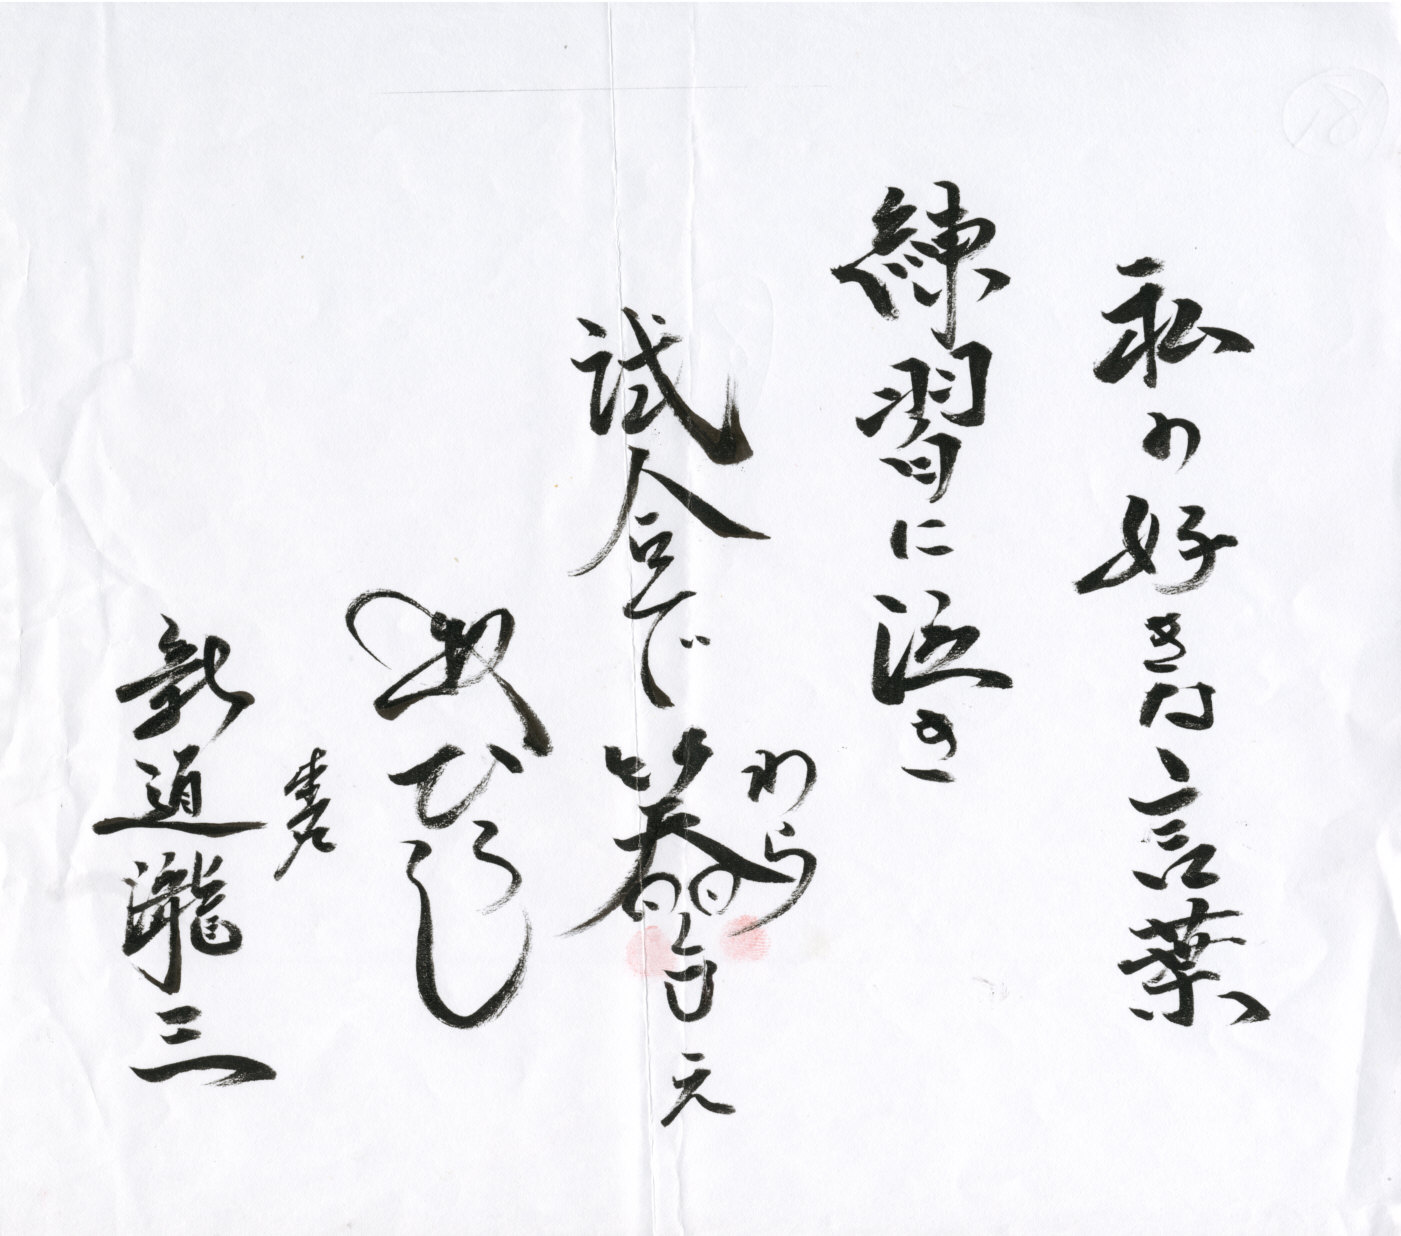 私の好きな言葉
練習に泣き
試合で笑え
わら
ひろし
新道瀧三